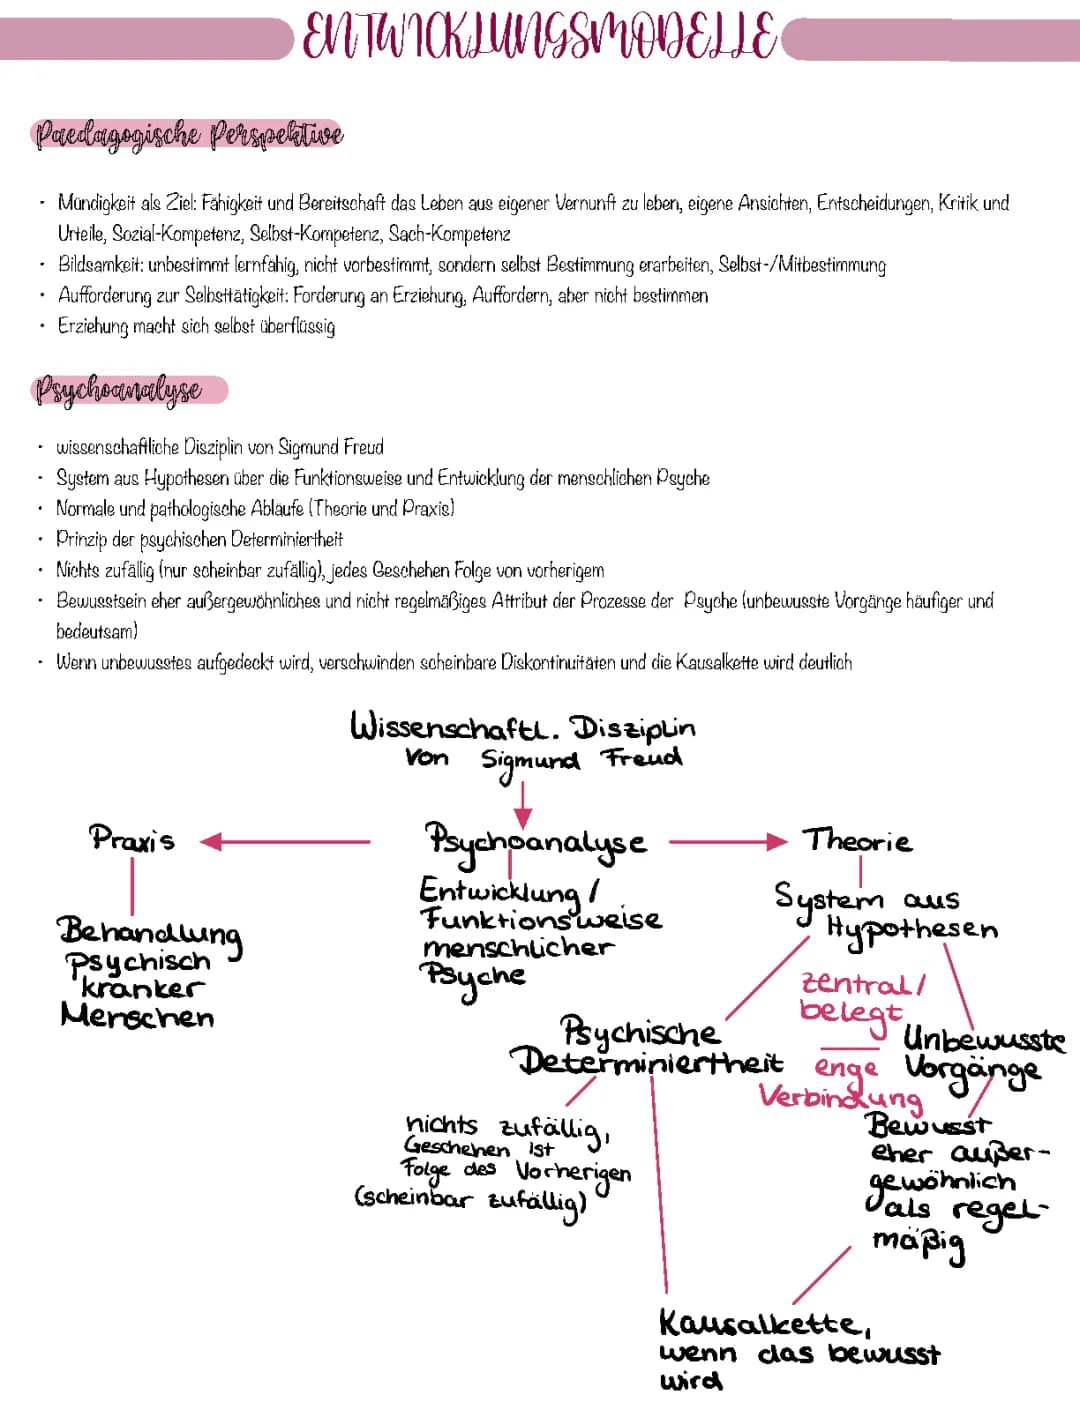 ENTWICKLUNGSMODELLE
Paedagogische Perspektive
• Mündigkeit als Ziel: Fähigkeit und Bereitschaft das Leben aus eigener Vernunft zu leben, eigene Ansichten, Entscheidungen, Kritik und
Urteile, Sozial-Kompetenz, Selbst-Kompetenz, Sach-Kompetenz
• Bildsamkeit: unbestimmt lernfähig, nicht vorbestimmt, sondern selbst Bestimmung erarbeiten, Selbst-/Mitbestimmung
• Aufforderung zur Selbsttätigkeit: Forderung an Erziehung, Auffordern, aber nicht bestimmen
• Erziehung macht sich selbst überflüssig
Psychoanalyse
• wissenschaftliche Disziplin von Sigmund Freud
• System aus Hypothesen über die Funktionsweise und Entwicklung der menschlichen Psyche
• Normale und pathologische Abläufe (Theorie und Praxis)
• Prinzip der psychischen Determiniertheit
• Nichts zufällig (nur scheinbar zufällig), jedes Geschehen Folge von vorherigem
• Bewusstsein eher außergewöhnliches und nicht regelmäßiges Attribut der Prozesse der Psyche (unbewusste Vorgänge häufiger und
bedeutsam)
• Wenn unbewusstes aufgedeckt wird, verschwinden scheinbare Diskontinuitäten und die Kausalkette wird deutlich
Wissenschaftl. Disziplin
von Sigmund Freud
Praxis
Psychoanalyse
Theorie
Behandlung
psychisch
kranker
Menschen
Entwicklung /
Funktionsweise
menschlicher
Psyche
System aus
Hypothesen
zentral /
belegt
Psychische
Determiniertheit
enge
Verbindung
Unbewusste
Vorgänge
nichts zufällig,
Geschehen ist
Folge des Vorherigen
(scheinbar zufällig)
Bewusst
eher außer-
gewöhnlich
als regel-
mäßig
Kausalkette,
wenn das bewusst
wird